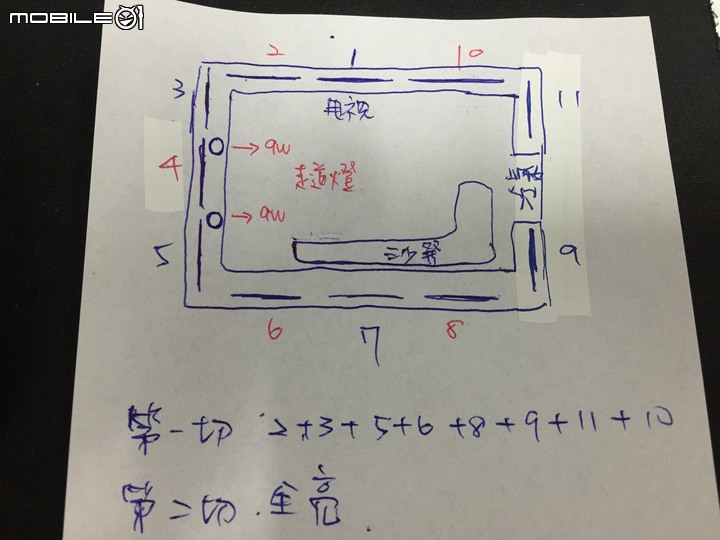 MOBILE01
2 1 10
3 11
电视
4 →9W
走道燈
→9W
5 沙發 9
6 7 8
第一切 2+3+5+6+8+9+11+10
第二切.全亮.